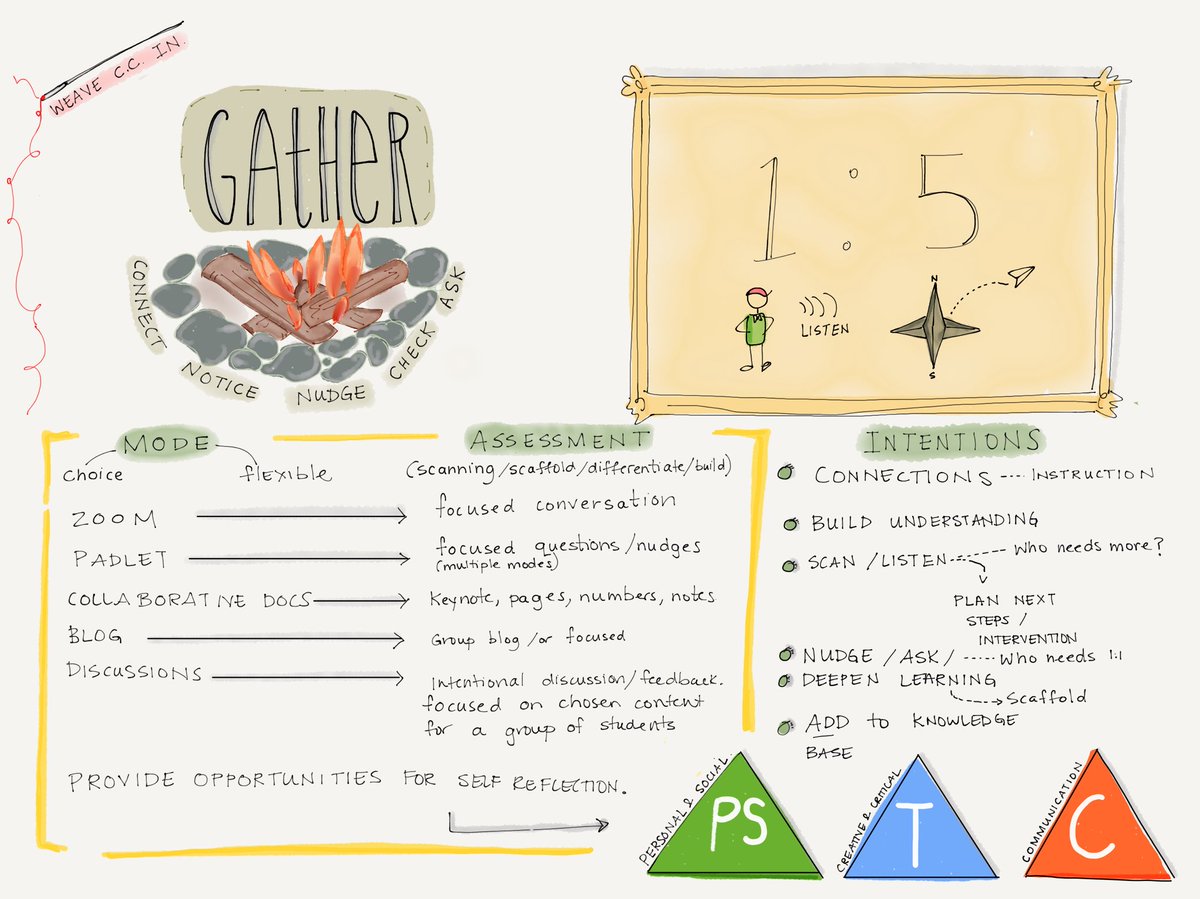 WEAVE C.C. IN.
GATHER
CONNECT
NOTICE
NUDGE
CHECK
ASK
1:5
LISTEN
N
S
MODE
choice
flexible
ASSESSMENT
(scanning/scaffold/differentiate/build)
ZOOM
focused conversation
PADLET
focused questions/nudges
(multiple modes)
COLLABORATIVE DOCS
Keynote, pages, numbers, notes
BLOG
Group blog /or focused
DISCUSSIONS
Intentional discussion/feedback.
focused on chosen content
for a group of students
PROVIDE OPPORTUNITIES FOR SELF REFLECTION.
INTENTIONS
CONNECTIONS ---- INSTRUCTION
BUILD UNDERSTANDING
SCAN /LISTEN ------- Who needs more?
PLAN NEXT
STEPS /
INTERVENTION
NUDGE /ASK/ ----- Who needs 1:1
DEEPEN LEARNING
Scaffold
ADD to KNOWLEDGE
BASE
PERSONAL & SOCIAL
PS
CREATIVE & CRITICAL
T
COMMUNICATION
C